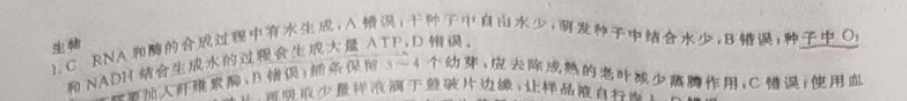 生物
1. C RNA和酶的合成过程中有水生成,A错误;干种子中自由水少,萌发种子中结合水少,B错误;种子中O₂
和NADH结合生成水的过程会生成大量ATP,D错误。
加入纤维素酶,B错误;插条保留3~4个幼芽,应去除成熟的老叶减少蒸腾作用,C错误;使用血
再吸取少量样液滴于盖玻片边缘,让样品液自行